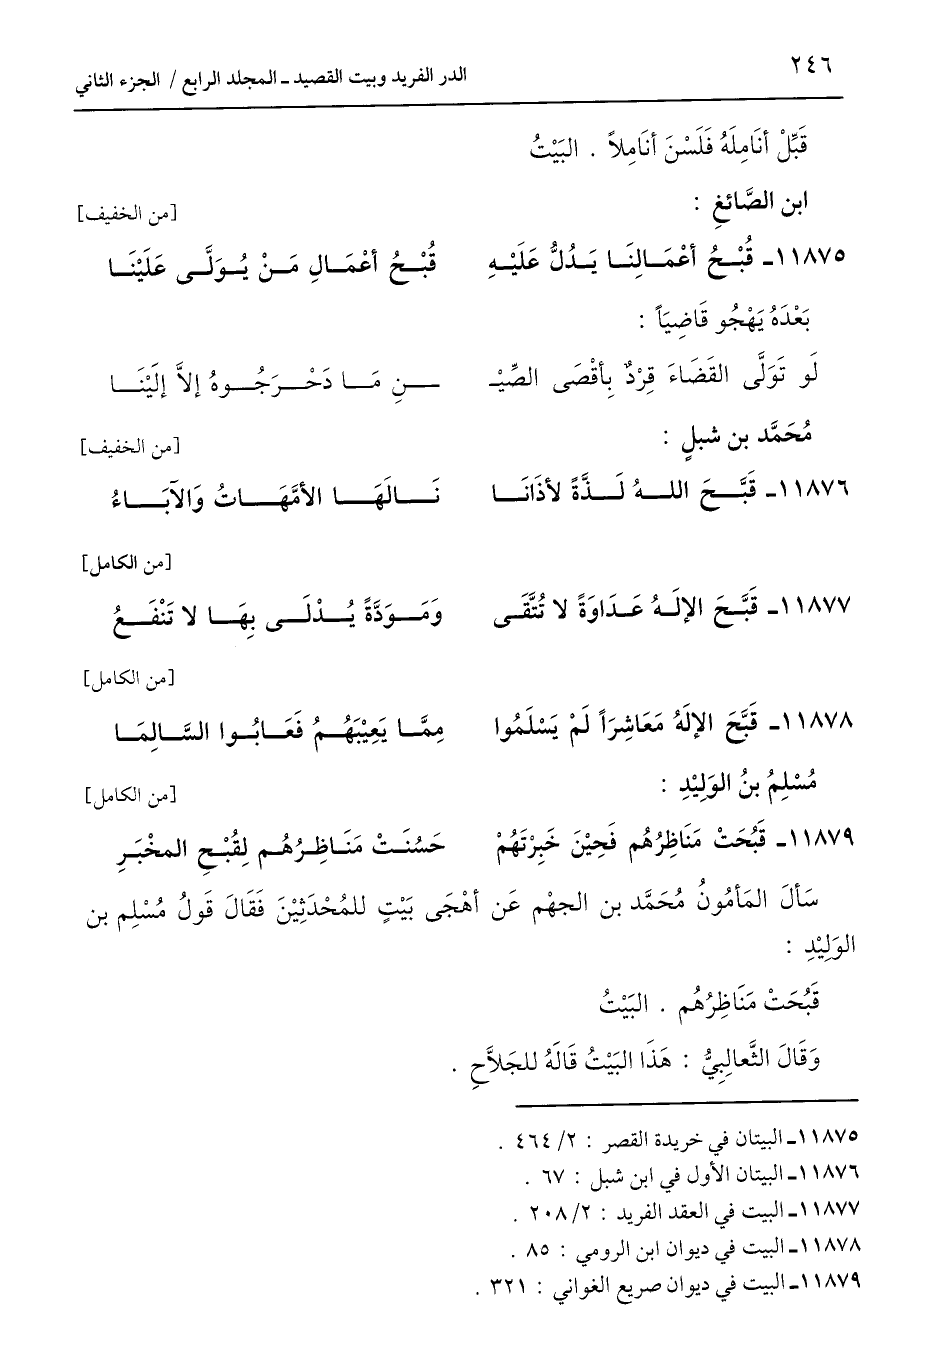 ٢٤٦
الدر الفريد وبيت القصيد ـ المجلد الرابع / الجزء الثاني
قَبِّلْ أنَامِلَهُ فَلَسْنَ أنَامِلاً . البَيْتُ
ابن الصَّائغِ :
[من الخفيف]
١١٨٧٥ـ قُبْحُ أعْمَالِنَا يَدُلُّ عَلَيْهِ قُبْحُ أعْمَالِ مَنْ يُوَلَّى عَلَيْنَا
بَعْدَهُ يَهْجُو قَاضِيَاً :
لَو تَوَلَّى القَضَاءَ قِرْدٌ بِأقْصَى الصِّيْـ ـنِ مَا دَحْرَجُوهُ إلاَّ إلَيْنَا
مُحَمَّد بن شبلٍ :
[من الخفيف]
١١٨٧٦ـ قَبَّحَ اللهُ لَذَّةً لأذَانَا نَالَهَا الأمَّهَاتُ وَالآبَاءُ
[من الكامل]
١١٨٧٧ـ قَبَّحَ الإلَهُ عَدَاوَةً لا تُتَّقَى وَمَوَدَّةً يُدْلَى بِهَا لا تَنْفَعُ
[من الكامل]
١١٨٧٨ـ قَبَّحَ الإلَهُ مَعَاشِرَاً لَمْ يَسْلَمُوا مِمَّا يَعِيْبَهُمُ فَعَابُوا السَّالِمَا
مُسْلِمُ بنُ الوَلِيْدِ :
[من الكامل]
١١٨٧٩ـ قَبُحَتْ مَنَاظِرُهُم فَحِيْنَ خَبِرْتَهُمْ حَسُنَتْ مَنَاظِرُهُم لِقُبْحِ المخْبَرِ
سَألَ المَأمُونُ مُحَمَّد بن الجهْم عَن أهْجَى بَيْتٍ للمُحْدَثِيْنَ فَقَالَ قَولُ مُسْلِم بن
الوَلِيْدِ :
قَبُحَتْ مَنَاظِرُهُم . البَيْتُ
وَقَالَ الثَّعالِبِيُّ : هَذَا البَيْتُ قَالَهُ للجَلاَّحِ .
١١٨٧٥ـ البيتان في خريدة القصر : ٢/ ٤٦٤ .
١١٨٧٦ـ البيتان الأول في ابن شبل : ٦٧ .
١١٨٧٧ـ البيت في العقد الفريد : ٢/ ٢٠٨ .
١١٨٧٨ـ البيت في ديوان ابن الرومي : ٨٥ .
١١٨٧٩ـ البيت في ديوان صريع الغواني : ٣٢١ .